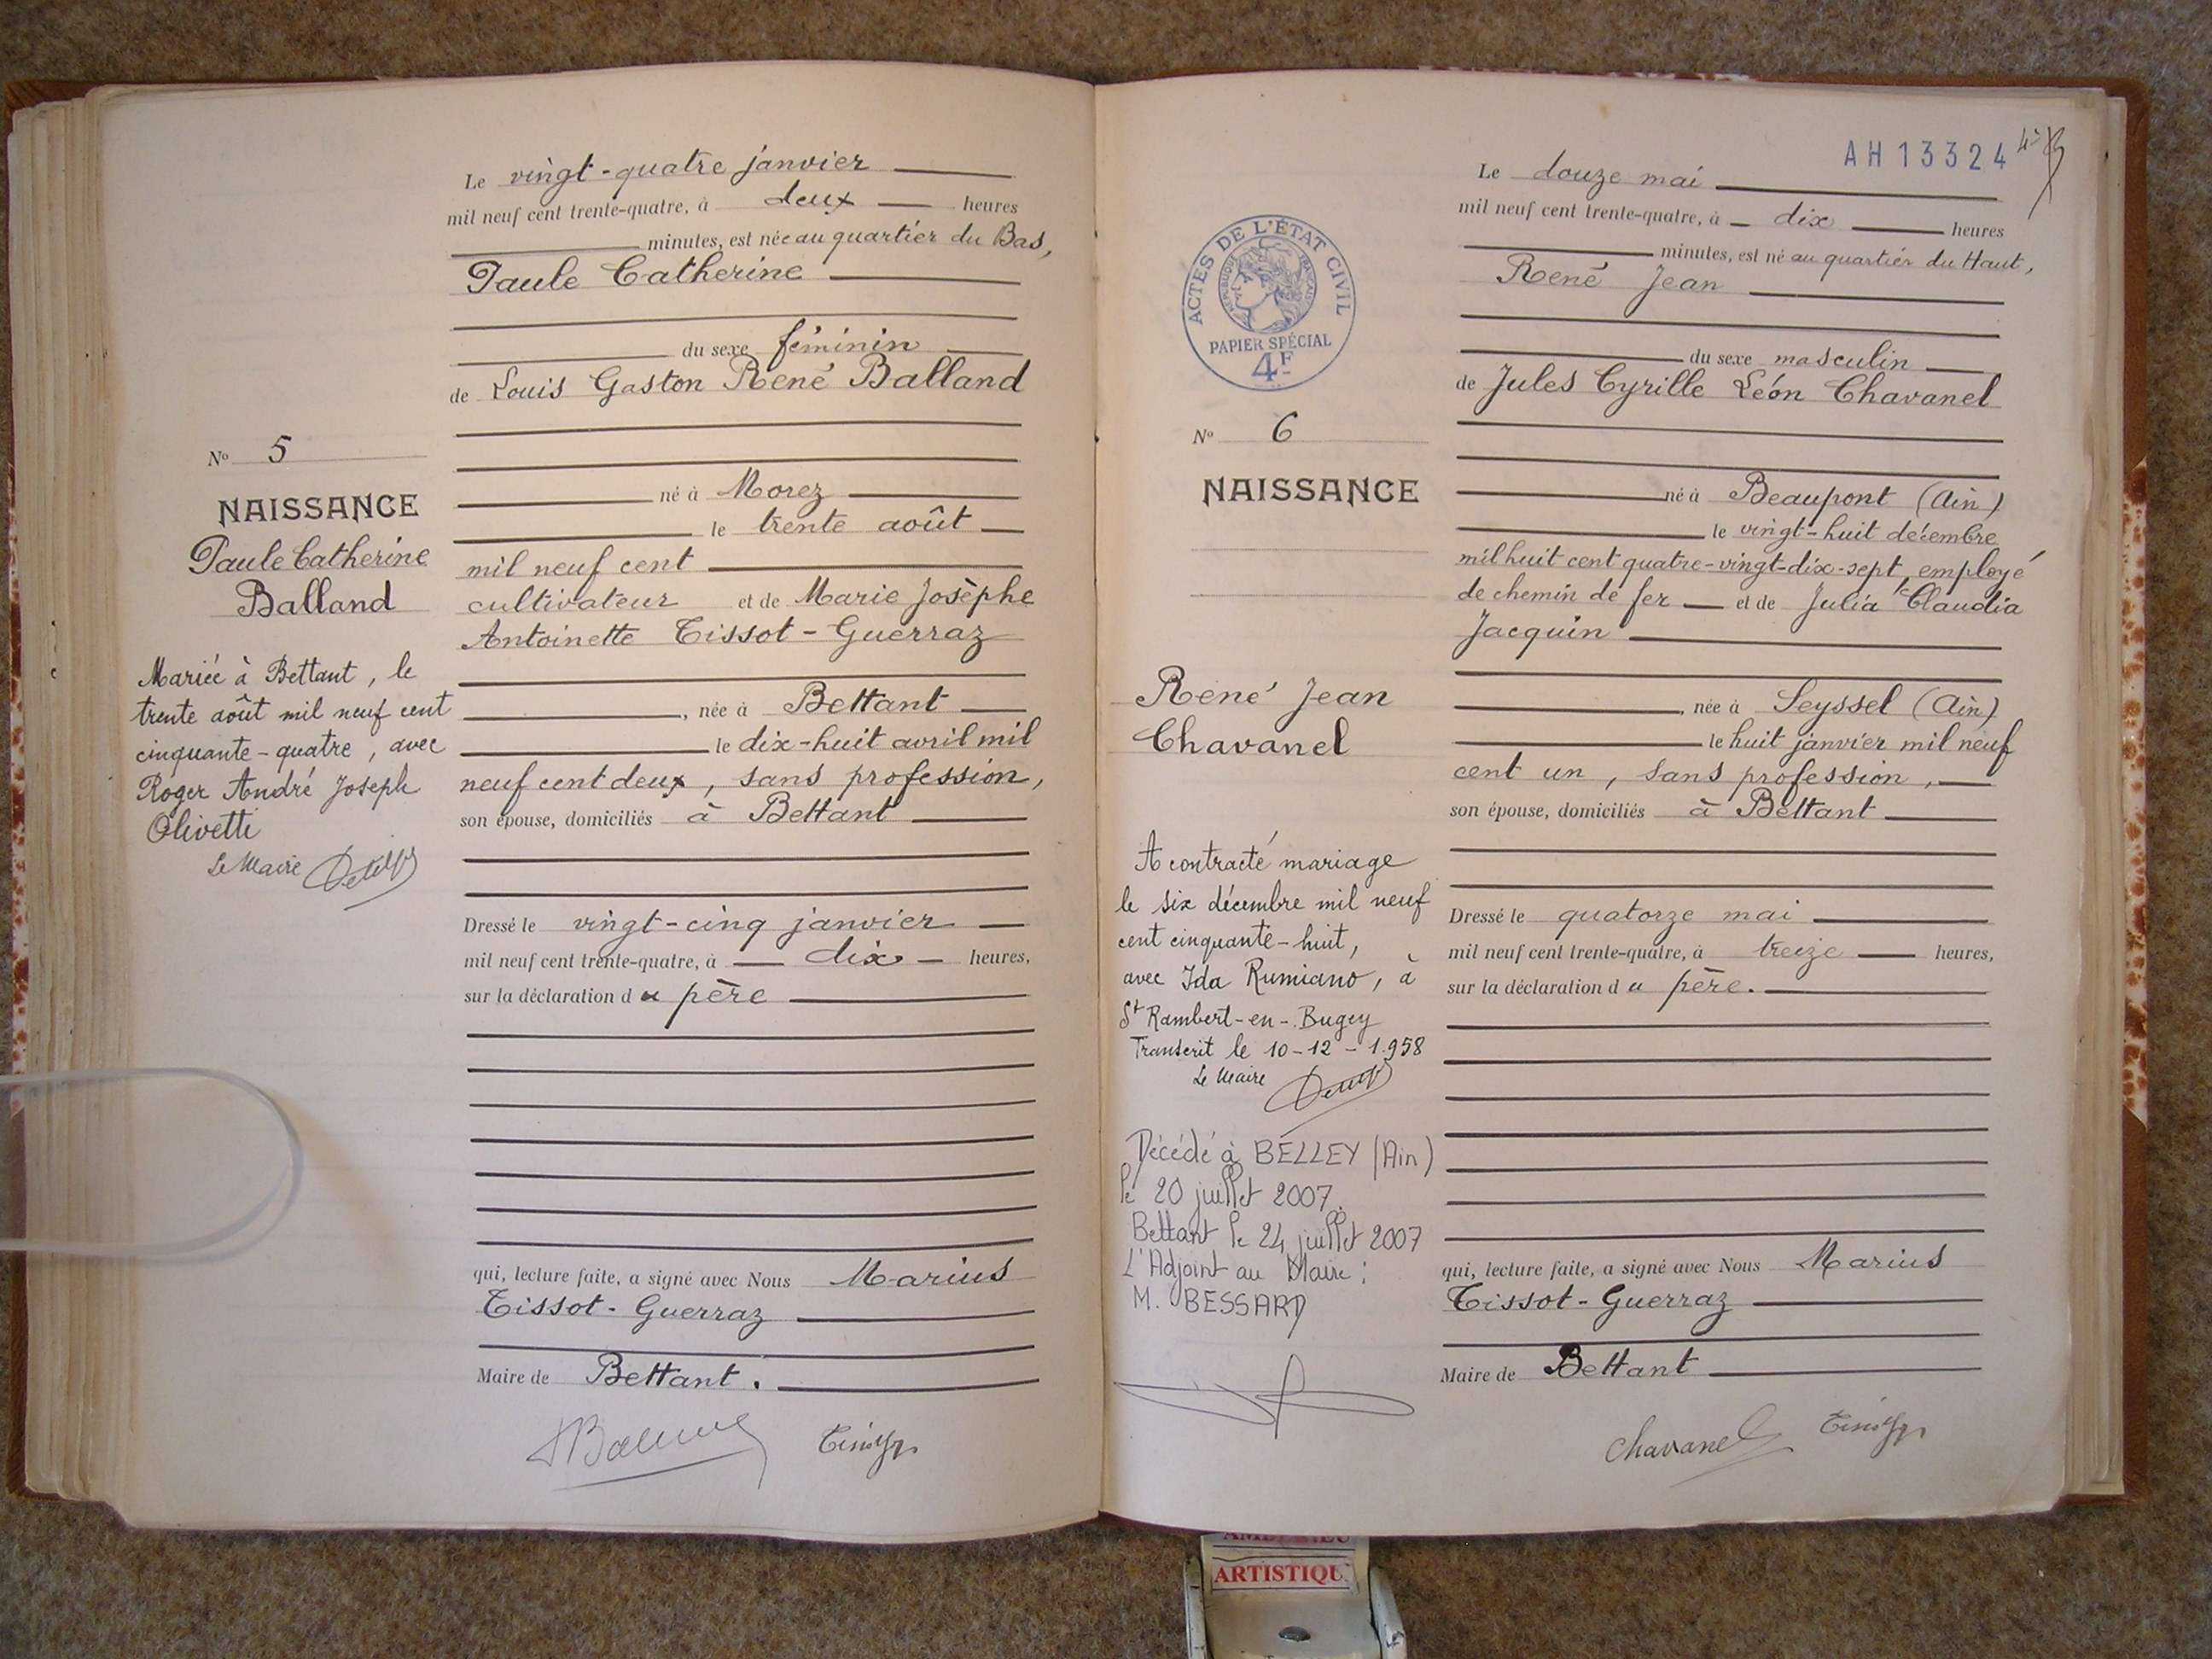 Le vingt-quatre janvier
mil neuf cent trente-quatre, à deux heures
minutes, est née au quartier du Bas,
Paule Catherine
du sexe féminin
de Louis Gaston René Balland
né à Morez
le trente août
mil neuf cent
cultivateur et de Marie Josèphe
Antoinette Tissot-Guerraz
, née à Bettant
le dix-huit avril mil
neuf cent deux, sans profession,
son épouse, domiciliés à Bettant
Dressé le vingt-cinq janvier
mil neuf cent trente-quatre, à dix heures,
sur la déclaration du père
qui, lecture faite, a signé avec Nous Marius
Tissot-Guerraz
Maire de Bettant.
No 5
NAISSANCE
Paule Catherine
Balland
Mariée à Bettant, le
trente août mil neuf cent
cinquante-quatre, avec
Roger André Joseph
Olivetti
Le Maire
AH 13324
Le douze mai
mil neuf cent trente-quatre, à dix heures
minutes, est né au quartier du Haut,
René Jean
du sexe masculin
de Jules Cyrille Léon Chavanel
né à Beaupont (Ain)
le vingt-huit décembre
mil huit cent quatre-vingt-dix-sept, employé
de chemin de fer et de Julia Claudia
Jacquin
, née à Seyssel (Ain)
le huit janvier mil neuf
cent un, sans profession,
son épouse, domiciliés à Bettant
Dressé le quatorze mai
mil neuf cent trente-quatre, à treize heures,
sur la déclaration du père.
qui, lecture faite, a signé avec Nous Marius
Tissot-Guerraz
Maire de Bettant
Chavanel
ACTES DE L'ÉTAT CIVIL
RÉPUBLIQUE FRANÇAISE
PAPIER SPÉCIAL
4F
No 6
NAISSANCE
René Jean
Chavanel
A contracté mariage
le six décembre mil neuf
cent cinquante-huit,
avec Ida Rumiano, à
St Rambert-en-Bugey
Transcrit le 10-12-1.958
Le Maire
Décédé à BELLEY (Ain)
le 20 juillet 2007.
Bettant le 24 juillet 2007
L'Adjoint au Maire :
M. BESSARD
ARTISTIQU